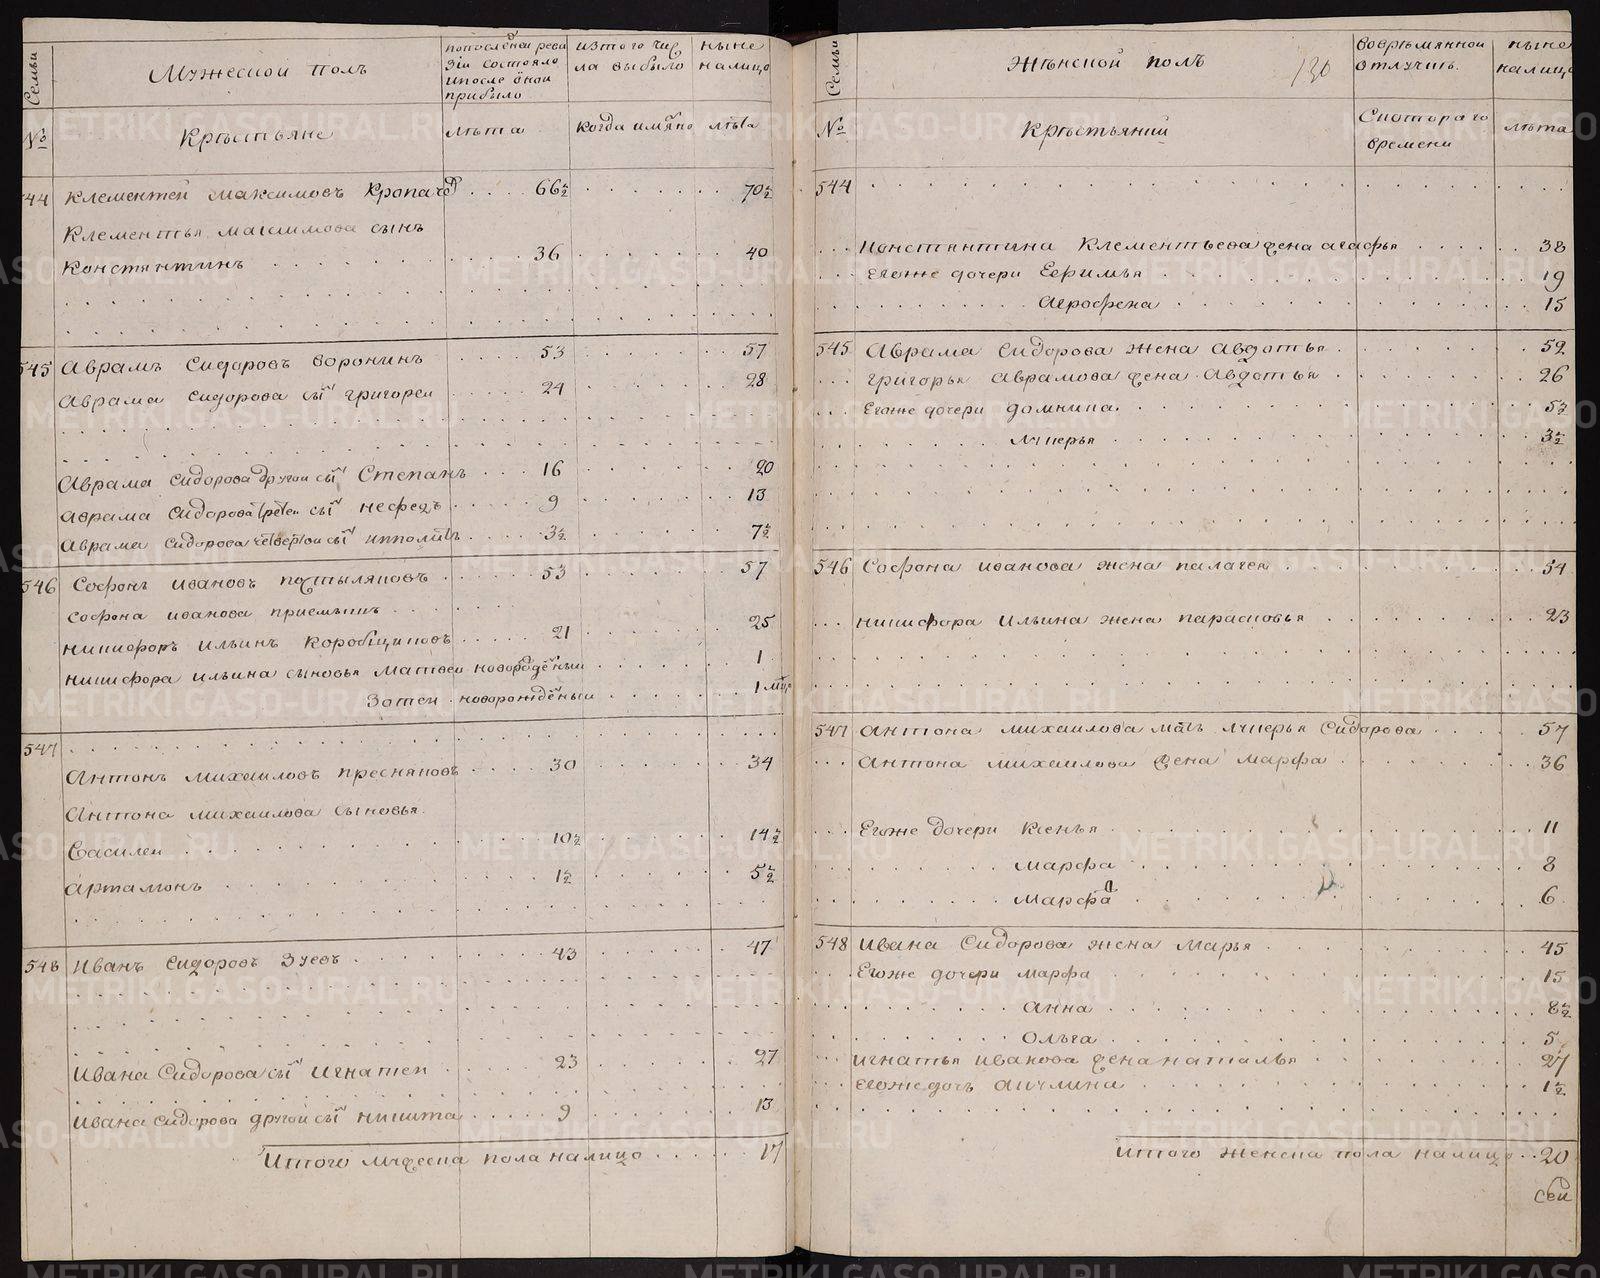 Семьи
Мужеской полъ
по последней реви
зiи состояло
и после оной
прибыло
из того чис
ла выбыло
ныне
на лицо
№
Крестьяне
лета
когда имяно
лета
544 Клементей Максимовъ Кропачовъ 66½ 70½
Клементья Максимова сынъ
Констянтинъ 36 40
545 Аврамъ Сидоровъ Воронинъ 53 57
Аврама Сидорова сынъ Григорей 24 28
Аврама Сидорова другой сынъ Степанъ 16 20
Аврама Сидорова третей сынъ Нефедъ 9 13
Аврама Сидорова четвертой сынъ Иполитъ 3½ 7½
546 Софонъ Ивановъ 53 57
Софона Иванова приемышъ
Никифоръ Ильинъ Коробщиковъ 21 25
Никифора Ильина сыновья Матвей новорожденый 1
Зотей новорожденый 1 мцъ
547
Антонъ Михаиловъ Пресняковъ 30 34
Антона Михаилова сыновья
Василеи 10½ 14½
Артамонъ 1½ 5½
548 Иванъ Сидоровъ Зуевъ 43 47
Ивана Сидорова сынъ Игнатей 23 27
Ивана Сидорова другой сынъ Никита 9 13
Итого мужеска пола на лицо 17
Семьи
Женской полъ
130
во временной
отлучке
ныне
на лицо
№
Крестьянки
С котораго
времени
лета
544
Констянтина Клементьева жена Агафья 38
Егоже дочери Ефимья 19
Агрофена 15
545 Аврама Сидорова жена Авдотья 52
Григорья Аврамова жена Авдотья 26
Егоже дочери Домника 5½
Лукерья 3½
546 Софона Иванова жена Палагея 54
Никифора Ильина жена Парасковья 23
547 Антона Михаилова мать Лукерья Сидорова 57
Антона Михаилова жена Марфа 36
Егоже дочери Ксенья 11
Марфа 8
Марфа 6
548 Ивана Сидорова жена Марья 45
Егоже дочери Марфа 15
Анна 8½
Ольга 5
Игнатья Иванова жена Наталья 27
Егоже дочь Акулина 1½
Итого женска пола на лицо 20
Сей
METRIKI.GASO-URAL.RU